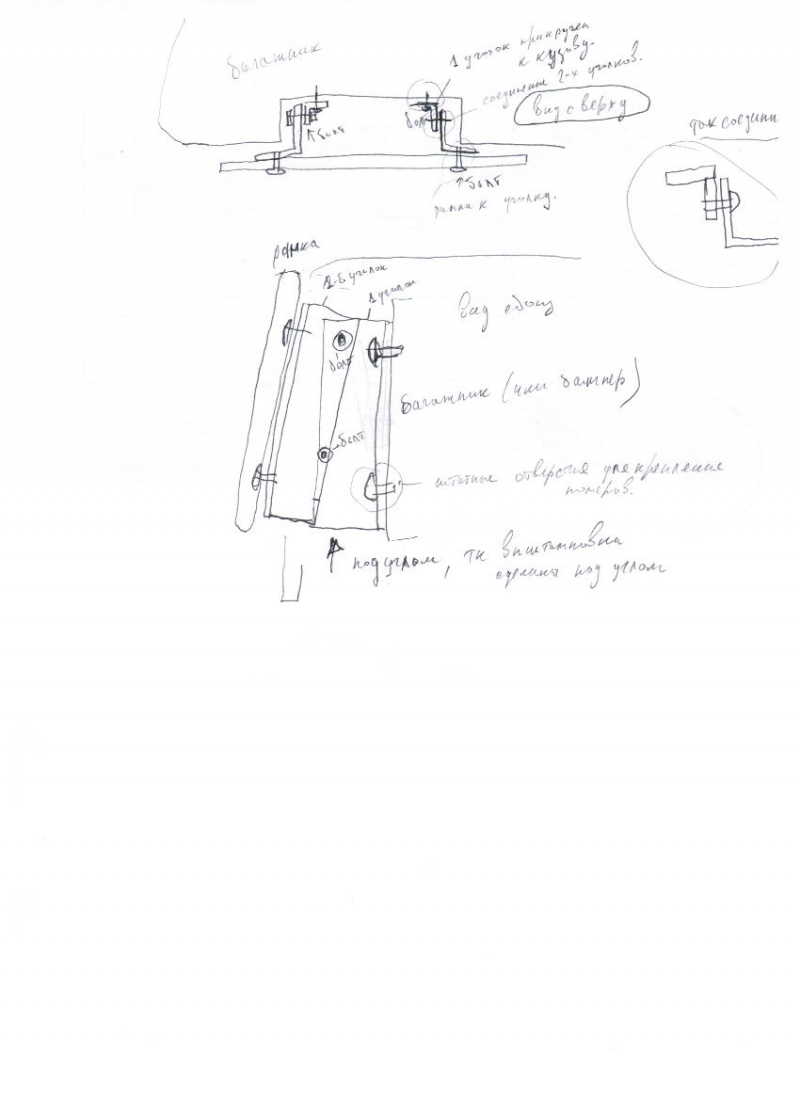 багажник
1 уголок прикручен
к кузову.
соединение 2-х уголков.
вид сверху
болт
болт
болт
рамка к уголку.
рамка
уголок
1 уголок
вид сбоку
болт
багажник (или бампер)
болт
штатные отверстия для крепления
номеров.
под углом, тк выштамповка
сделана под углом